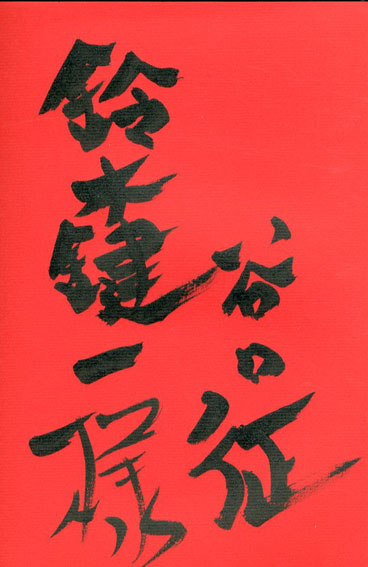 谷口征
鈴木鍵一様